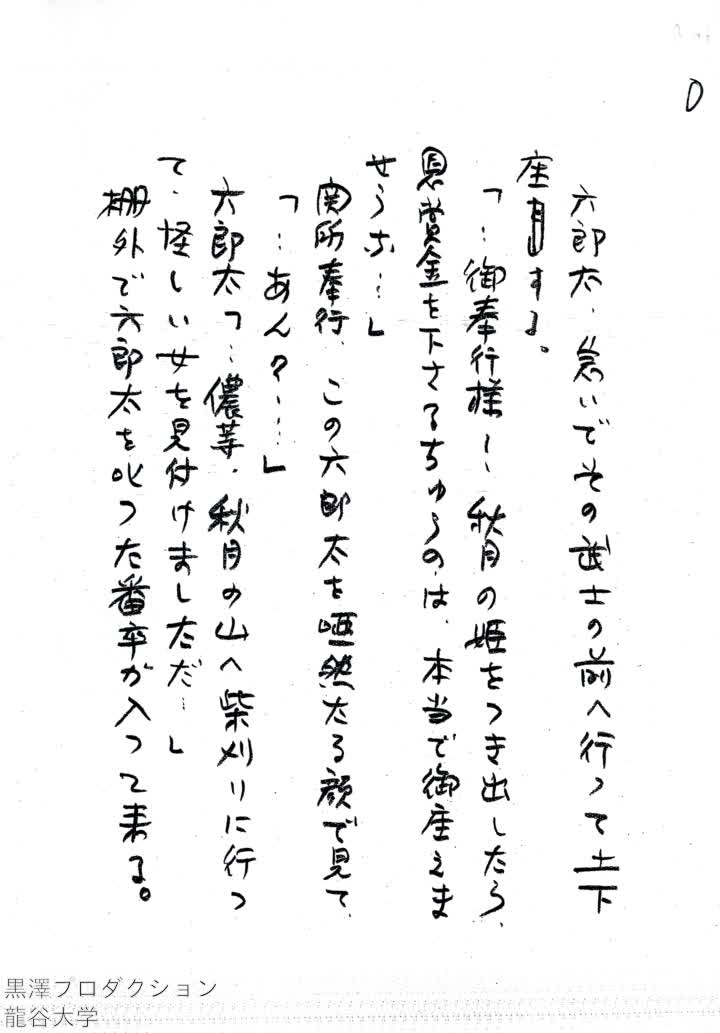 六郎太、急いでその武士の前へ行って土下
座する。
「…御奉行様！…秋月の姫をつき出したら、
賞金を下さるちゅうのは、本当で御座えま
せうな…」
関所奉行、この六郎太を唖然たる顔で見て、
「…あん？…」
六郎太「…儂等、秋月の山へ柴刈りに行っ
て、怪しい女を見付けましただ…」
柵外で六郎太を叱った番卒が入って来る。
黒澤プロダクション
龍谷大学